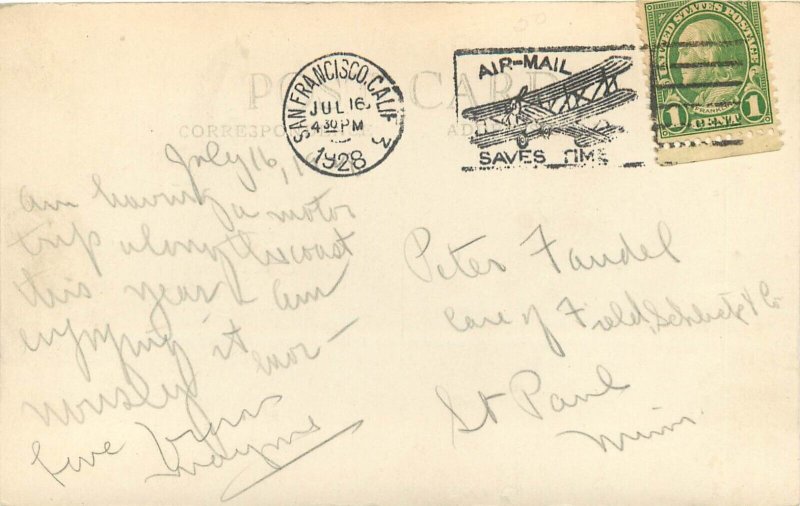 POST CARD
CORRESPONDENCE ADDRESS
SAN FRANCISCO, CALIF. 3
JUL 16
4 30 PM
1928
AIR-MAIL
SAVES TIME
UNITED STATES POSTAGE
FRANKLIN
1 CENT 1
July 16, 19
Am having a motor
trip along the coast
this year & am
enjoying it enor-
mously
Wayne
Peter Faudel
Care of Field, Schlick & Co
St Paul
Minn